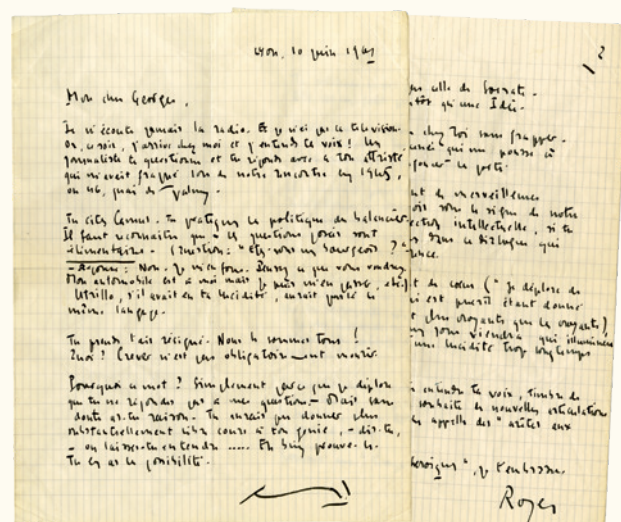 Lyon, 10 juin 19
Mon cher Georges,
Je n'écoute jamais la radio. Et je n'ai pas la télévision.
Or, ce soir, j'arrive chez moi et j'entends ta voix ! Un
journaliste te questionne et tu réponds avec ce ton attristé
qui m'avait frappé lors de notre rencontre en 1945,
ou 46, quai de Valmy.
Tu cites Camus. Tu pratiques la politique du balancier.
Il faut reconnaître que les questions posées sont
élémentaires. - (Question : "Etes-vous un bourgeois ? "
- Réponse : Non. Je m'en fous. Pensez ce que vous voudrez.
Mon automobile est à moi mais je puis m'en passer, etc.)
Utrillo, s'il avait eu ta lucidité, aurait parlé ce
même langage.
Tu prends l'air résigné. Nous le sommes tous !
Quoi ? Crever n'est pas obligatoirement mourir.
Pourquoi ce mot ? Simplement parce que je déplore
que tu ne répondes pas à mes questions. - Mais sans
doute as-tu raison. - Tu aurais pu donner plus
substantiellement libre cours à ton génie, - dis-tu,
- ou laisses-tu entendre ..... Eh bien, prouve-le.
Tu en as la possibilité.
2
que celle de Socrate.
tôt qu'une Idée.
chez toi sans frapper.
qui me pousse à
le geste.
de merveilleux
sous le signe de notre
intellectuelle, si tu
dans ce dialogue qui
de coeur (" Je déplore de
qui est puéril étant donné
plus croyants que les croyants),
jour viendra qui illuminera
une lucidité trop longtemps
entendre ta voix, timbre de
souhaite de nouvelles articulations
appelle des " arêtes aux
", je t'embrasse
Roger